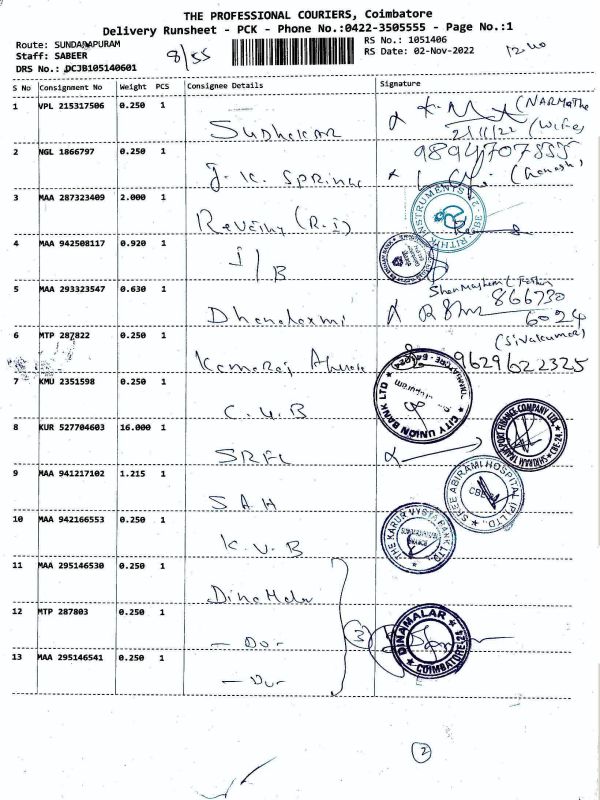 THE PROFESSIONAL COURIERS, Coimbatore
Delivery Runsheet - PCK - Phone No.:0422-3505555 - Page No.:1
Route: SUNDARAPURAM
RS No.: 1051406
Staff: SABEER
8/55
RS Date: 02-Nov-2022
DRS No.: DCJB105140601
S No Consignment No Weight PCS Consignee Details Signature
1 VPL 215317506 0.250 1 Sudhakar
2 NGL 1866797 0.250 1 J.K. Springs
9894707855
3 MAA 287323409 2.000 1 Revathy (R.I)
RITHIK INSTRUMENTS
4 MAA 942508117 0.920 1 I/B
5 MAA 293323547 0.630 1 Dhanalaxmi
866730
6024
(Sivakumar)
6 MTP 287822 0.250 1 Kamaraj
9629622325
7 KMU 2351598 0.250 1 C.U.B
CITY UNION BANK LTD
8 KUR 527704603 16.000 1 SRFL
SHRIRAM TRANSPORT FINANCE COMPANY LTD. CBE-24
9 MAA 941217102 1.215 1 S.A.H
SREE ABIRAMI HOSPITAL (P) LTD.
10 MAA 942166553 0.250 1 K.V.B
THE KARUR VYSYA BANK LTD.
11 MAA 295146530 0.250 1 DinaMalar
12 MTP 287803 0.250 1 - Do -
3
DINAMALAR COIMBATORE
13 MAA 295146541 0.250 1 - Do -
2